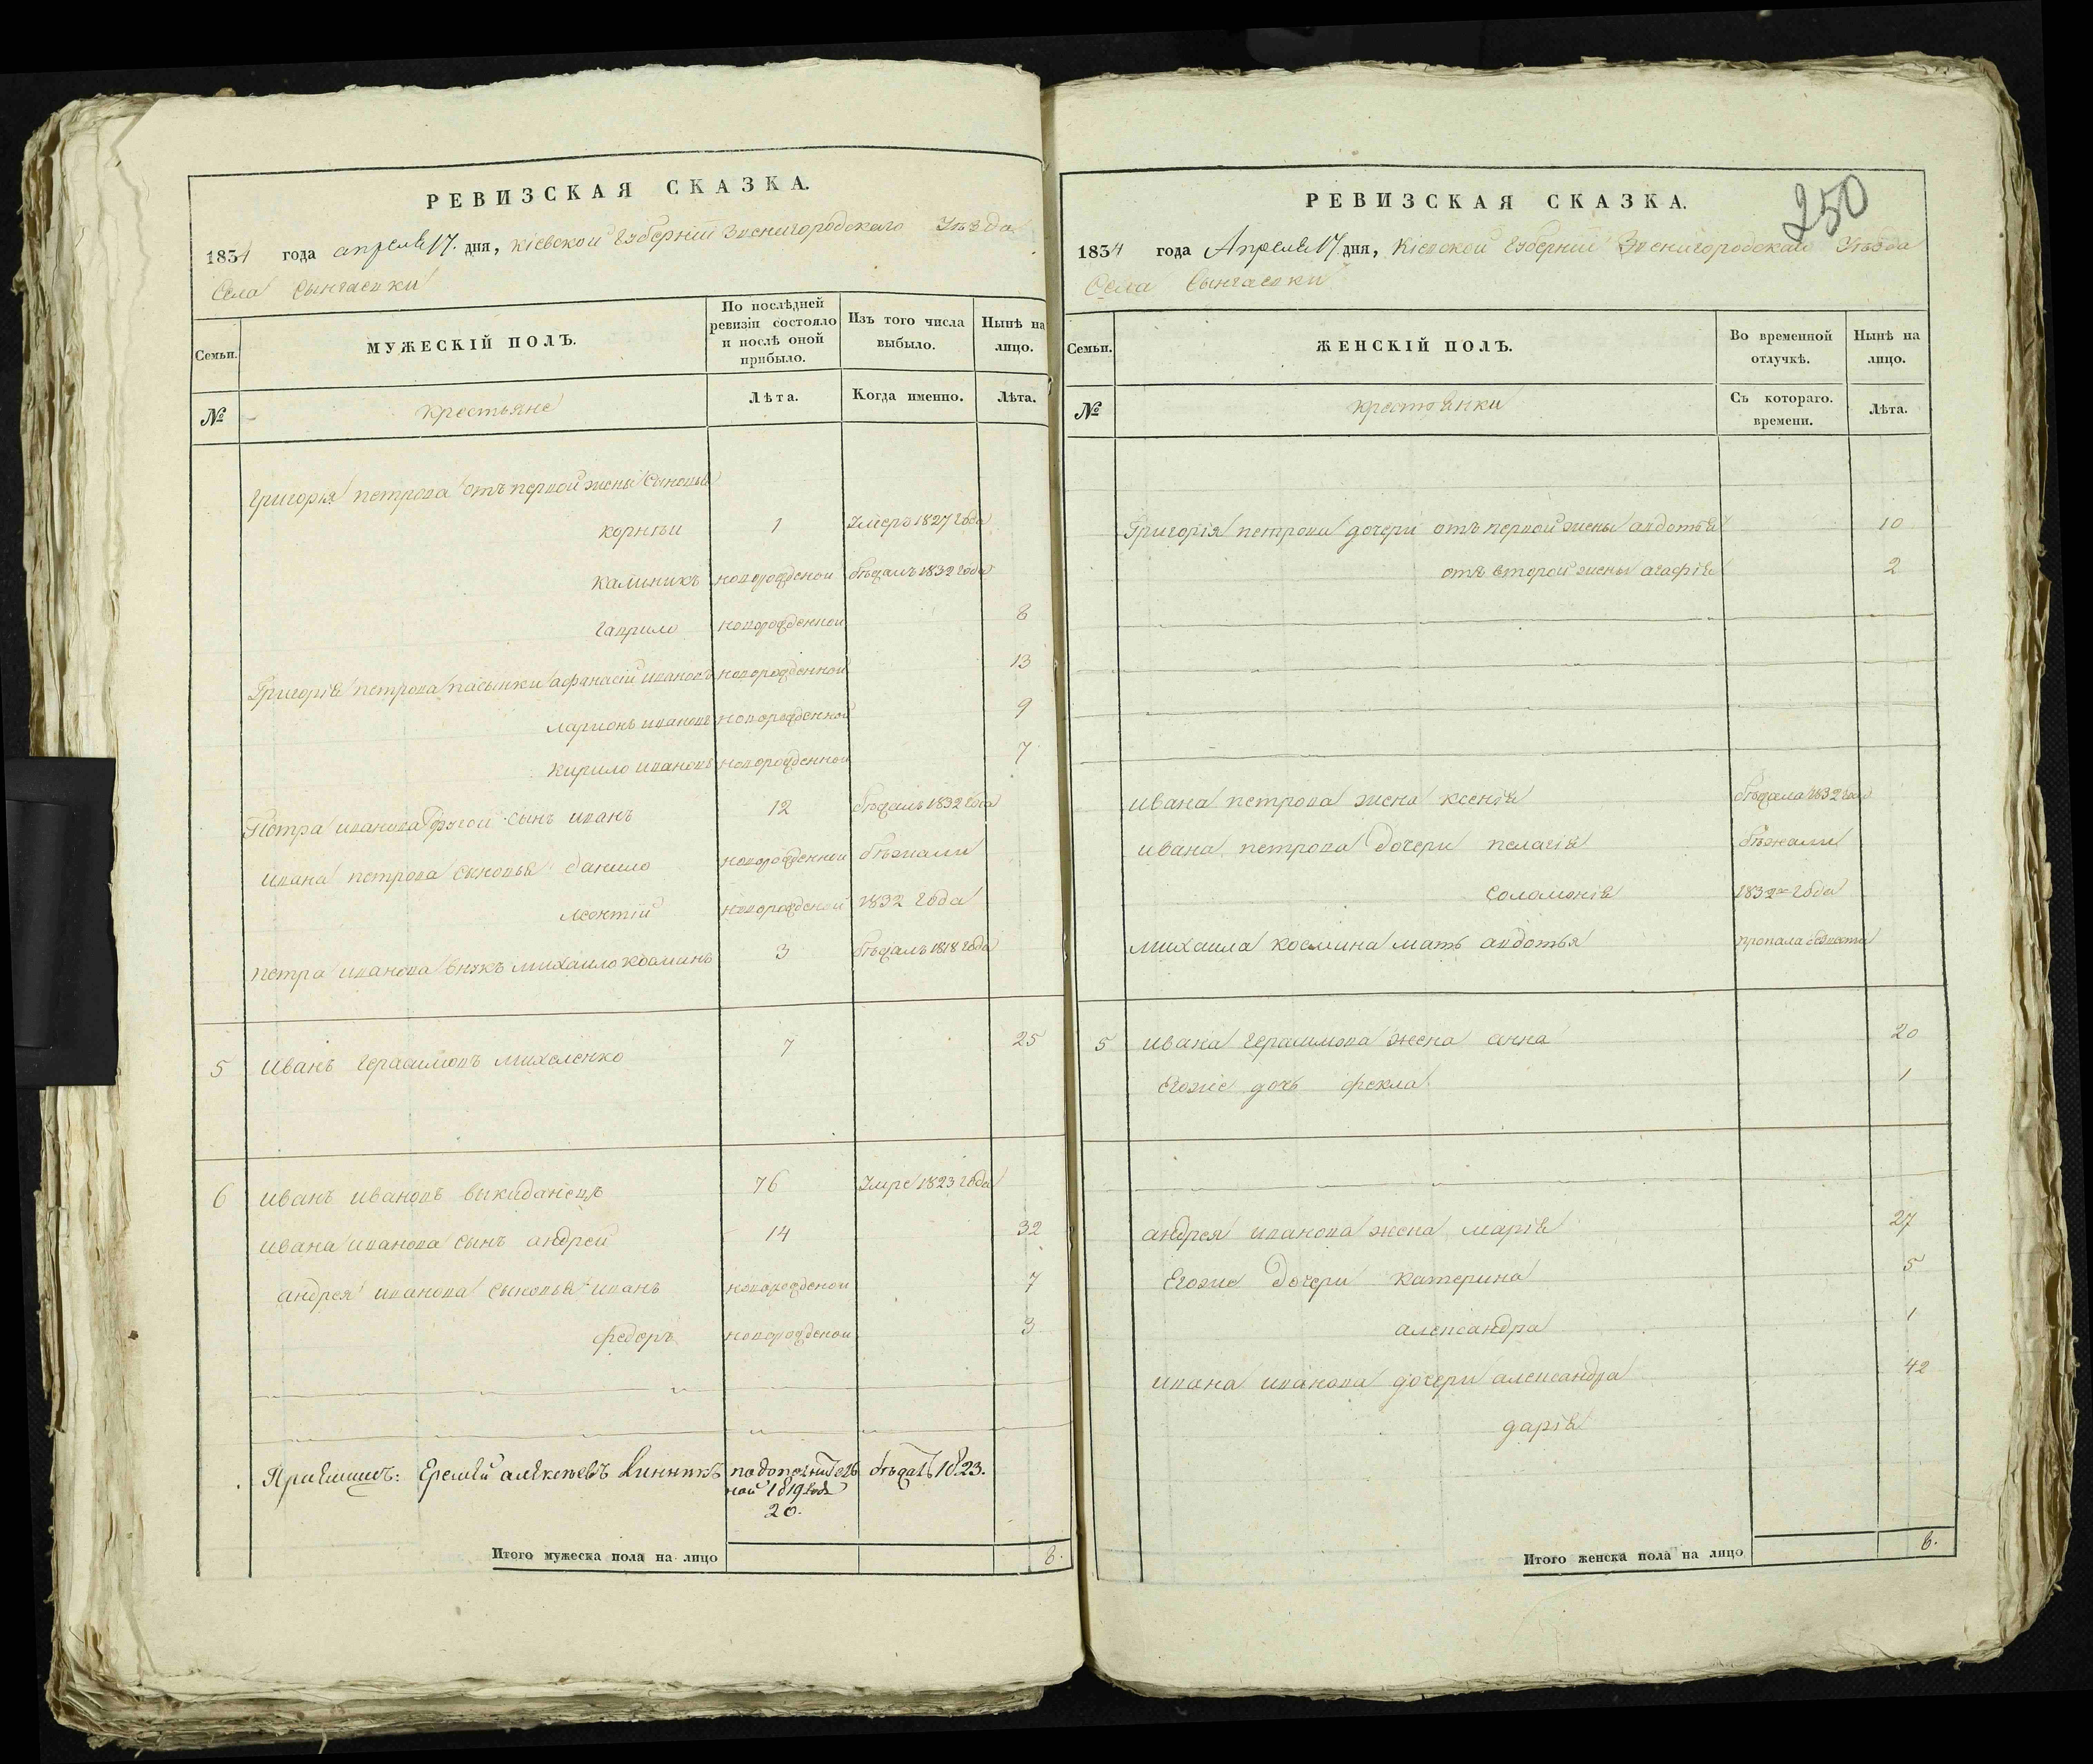 РЕВИЗСКАЯ СКАЗКА.
1834 года апреля 17. дня, Кіевской Губерніи Звенигородского Уѣзда
Села
Семьи.
МУЖЕСКІЙ ПОЛЪ.
По послѣдней ревизіи состояло и послѣ оной прибыло.
Изъ того числа выбыло.
Нынѣ на лицо.
№
крестьяне
Лѣта.
Когда именно.
Лѣта.
Григорія петрова отъ первой жены сыновья
корнѣи 1 Умеръ 1827 года
калиникъ новорожденои бѣжалъ 1832 года
гаврило новорожденнои 8
Григорія петрова пасынки афанасіи ивановъ новорожденнои 13
ларионъ ивановъ новорожденнои 9
кирило ивановъ новорожденнои 7
Петра иванова другои сынъ иванъ 12 бѣжалъ 1832 года
ивана петрова сыновья данило новорожденнои бѣжали
леонтіи новорожденои 1832 года
петра иванова внукъ михаило косминъ 3 бѣжалъ 1818 года
5 иванъ герасимовъ михаленко 7 25
6 иванъ ивановъ выкиданецъ 76 Умре 1823 года
ивана иванова сынъ андреи 14 32
андрея иванова сыновья иванъ новорожденои 7
федоръ новорожденои 3
Еремѣй алексѣевъ Винникъ по дополнитель бѣжалъ 1823.
ной 1819 года
20.
Итого мужеска пола на лицо 8.
250
РЕВИЗСКАЯ СКАЗКА.
1834 года Апреля 17 дня, Кіевской Губерніи Звенигородскаго Уѣзда
Села
Семьи.
ЖЕНСКІЙ ПОЛЪ.
Во временной отлучкѣ.
Нынѣ на лицо.
№
крестьянки
Съ котораго. времени.
Лѣта.
Григорія петрова дочери отъ первой жены авдотья 10
отъ второй жены агафія 2
ивана петрова жена ксенія бѣжала 1832 года
ивана петрова дочери пелагія бѣжали
соломонія 1832 года
михаила космина мать авдотья пропала
5 ивана герасимова жена анна 20
Егоже дочь фекла 1
андрея иванова жена марія 27
Егоже дочери катерина 5
александра 1
ивана иванова дочери александра 42
дарія
Итого женска пола на лицо 8.